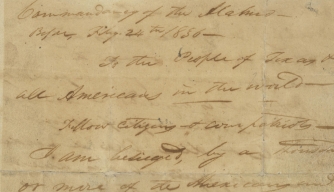 Commandancy of the Alamo—
Bejar, Feby. 24th 1836—
To the People of Texas &
all Americans in the world—
Fellow Citizens & compatriots—
I am besieged, by a thousand
or more of the Mexicans under